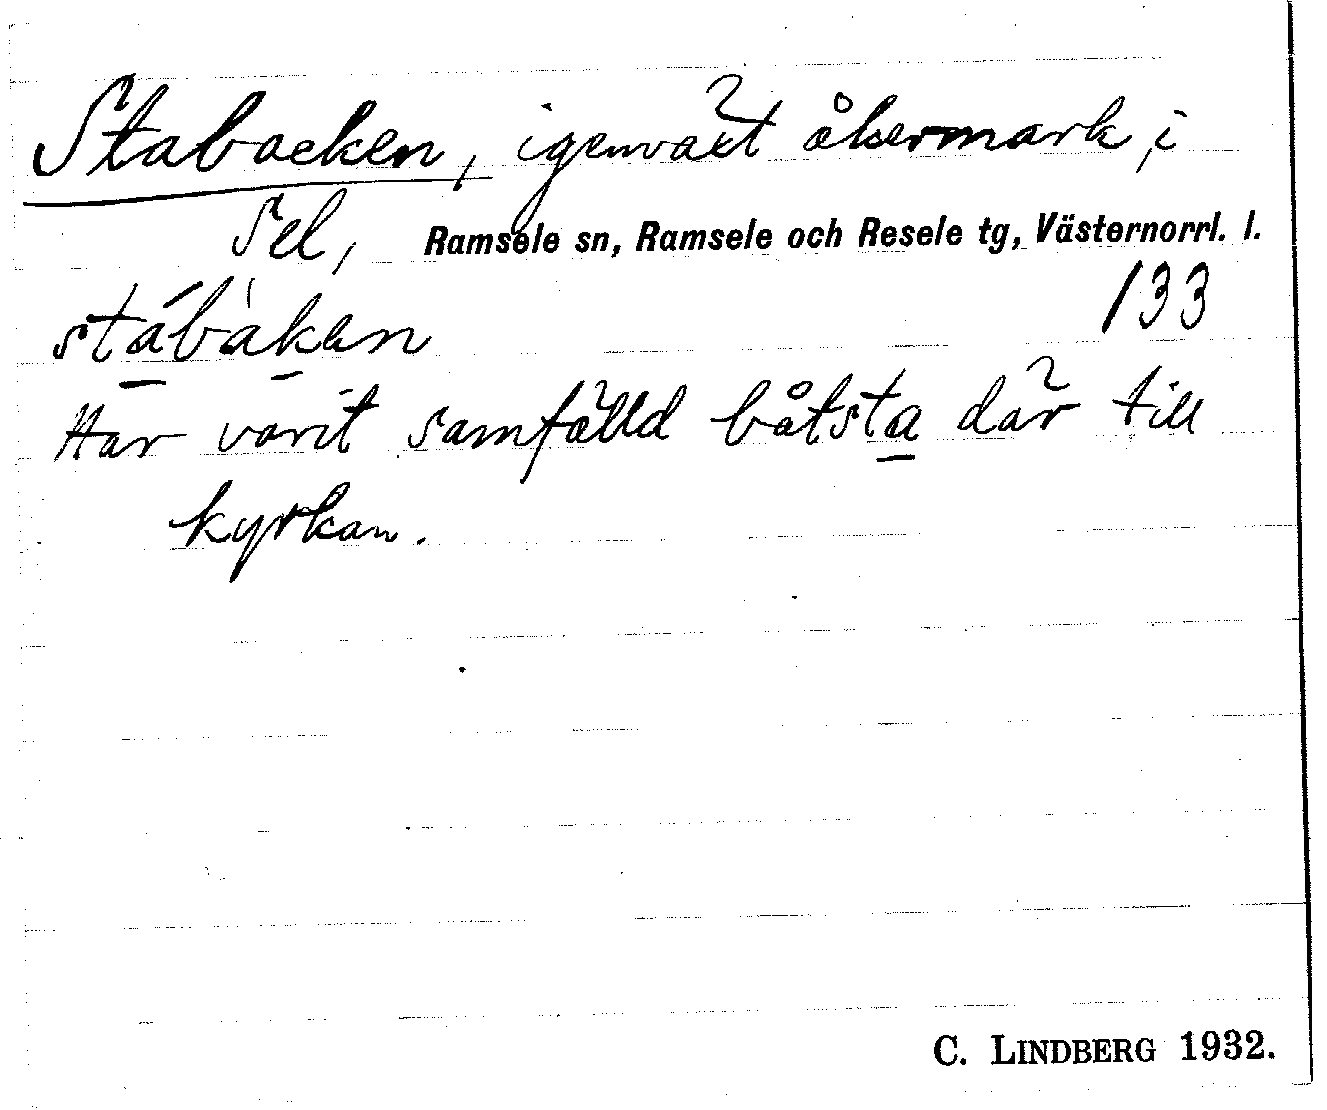 Stabacken, igenväxt åkermark, i
Sel, Ramsele sn, Ramsele och Resele tg, Västernorrl. l.
133
stábàkan
Har varit samfälld båtsta där till
kyrkan.
C. LINDBERG 1932.